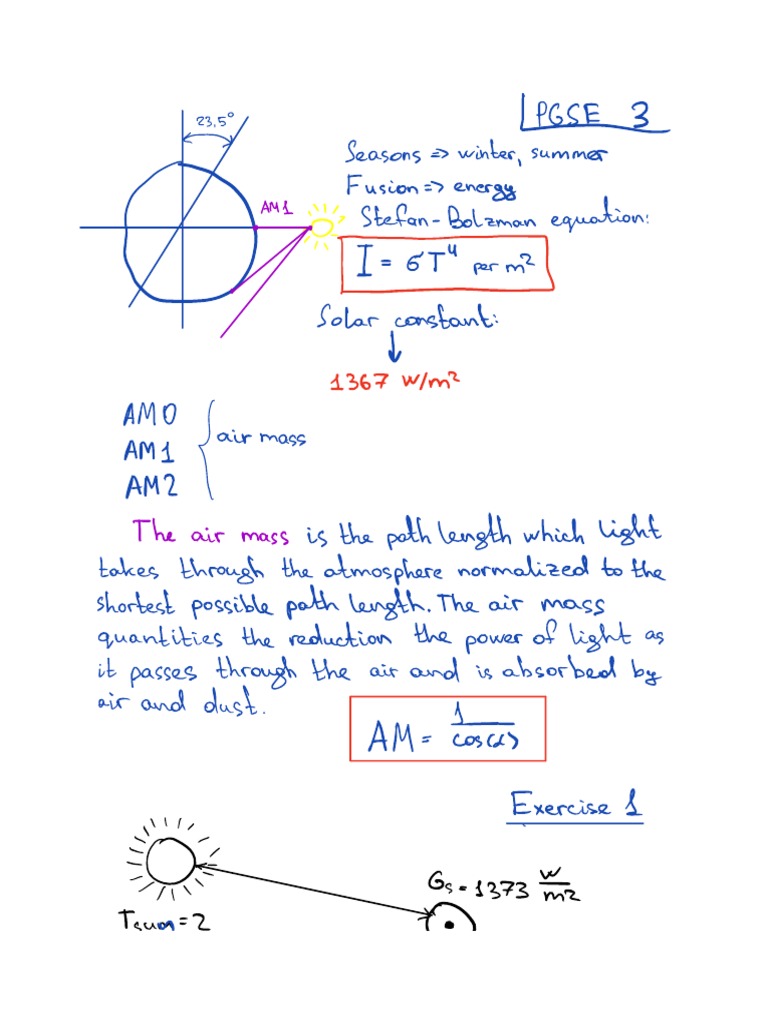 PGSE 3
23,5°
Seasons => winter, summer
Fusion => energy
AM1
Stefan-Bolzman equation:
I = σT⁴ per m²
Solar constant:
↓
1367 W/m²
AM0
AM1
AM2
air mass
The air mass is the path length which light
takes through the atmosphere normalized to the
shortest possible path length. The air mass
quantities the reduction the power of light as
it passes through the air and is absorbed by
air and dust.
AM = 1/cos(α)
Exercise 1
Gs = 1373 W/m²
Tsun = 2